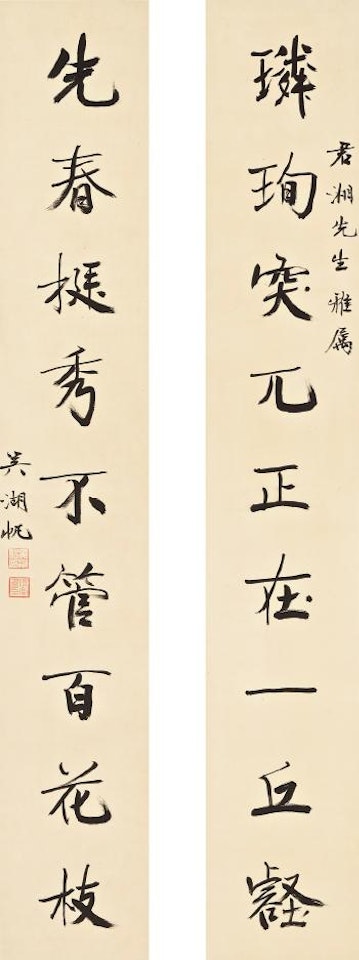 君湘先生雅属
璘珣突兀正在一丘壑
先春挺秀不管百花枝
吴湖帆